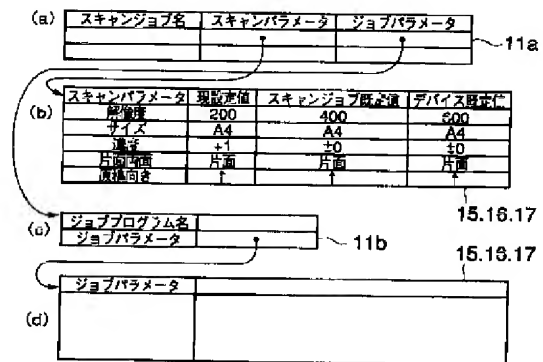 (a) スキャンジョブ名 スキャンパラメータ ジョブパラメータ
11a
(b) スキャンパラメータ 現設定値 スキャンジョブ既定値 デバイス既定値
解像度 200 400 600
サイズ A4 A4 A4
濃さ +1 ±0 ±0
片面両面 片面 片面 片面
原稿向き ↑ ↑ ↑
15.16.17
(c) ジョブプログラム名
ジョブパラメータ
11b
15.16.17
(d) ジョブパラメータ